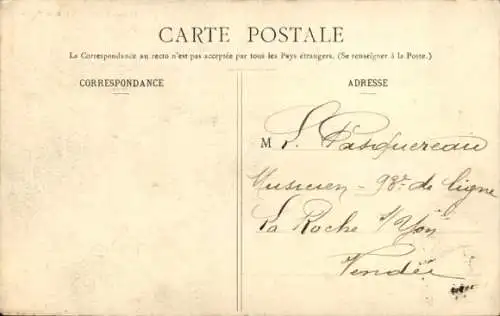 CARTE POSTALE
La Correspondance au recto n'est pas acceptée par tous les Pays étrangers. (Se renseigner à la Poste.)
CORRESPONDANCE
ADRESSE
M L. Pasquereau
Musicien - 93e de ligne
La Roche s/Yon
Vendée